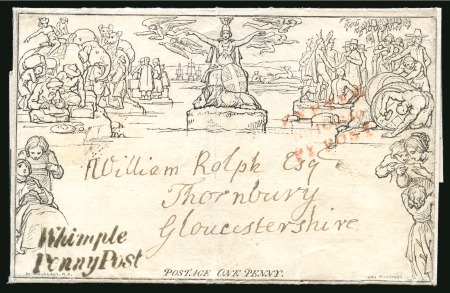 William Rolph Esq
Thornbury
Gloucestershire
Whimple
Penny Post
POSTAGE ONE PENNY.